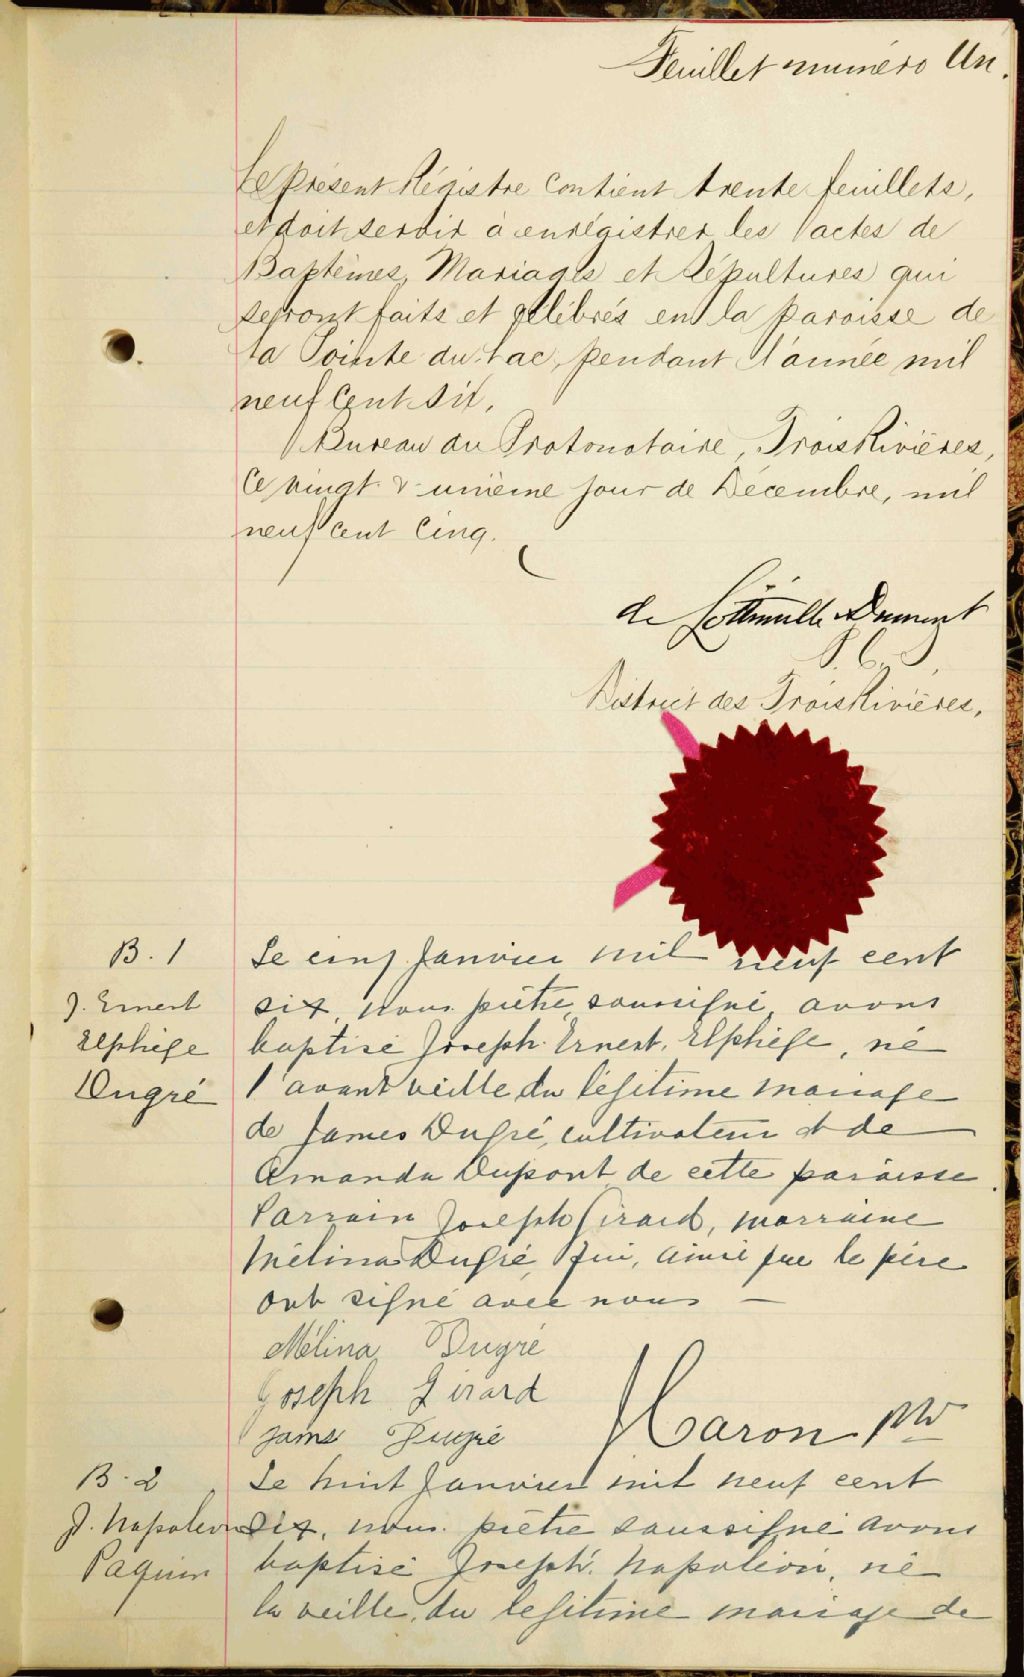 Feuillet numéro Un.
Le présent Régistre contient trente feuillets,
et doit servir à enrégistrer les actes de
Baptêmes, Mariages et Sépultures qui
seront faits et célébrés en la paroisse de
la Pointe du Lac, pendant l'année mil
neuf cent six.
Bureau du Protonotaire, Trois Rivières,
ce vingt & unième jour de Décembre, mil
neuf cent cinq.
de Lottinville Dumont
P. C. S.
District des Trois Rivières,
B. 1
J. Ernest
Elphège
Dugré
Le cinq Janvier mil neuf cent
six, nous prêtre soussigné avons
baptisé Joseph Ernest, Elphège, né
l'avant veille du légitime mariage
de James Dugré, cultivateur et de
Amanda Dupont de cette paroisse.
Parrain Joseph Girard, marraine
Mélina Dugré, qui, ainsi que le père
ont signé avec nous —
Mélina Dugré
Joseph Girard
Jams Dugré
Caron ptre
B. 2
J. Napoleon
Paquin
Le huit Janvier mil neuf cent
six, nous prêtre soussigné avons
baptisé Joseph, Napoléon, né
la veille, du legitime mariage de